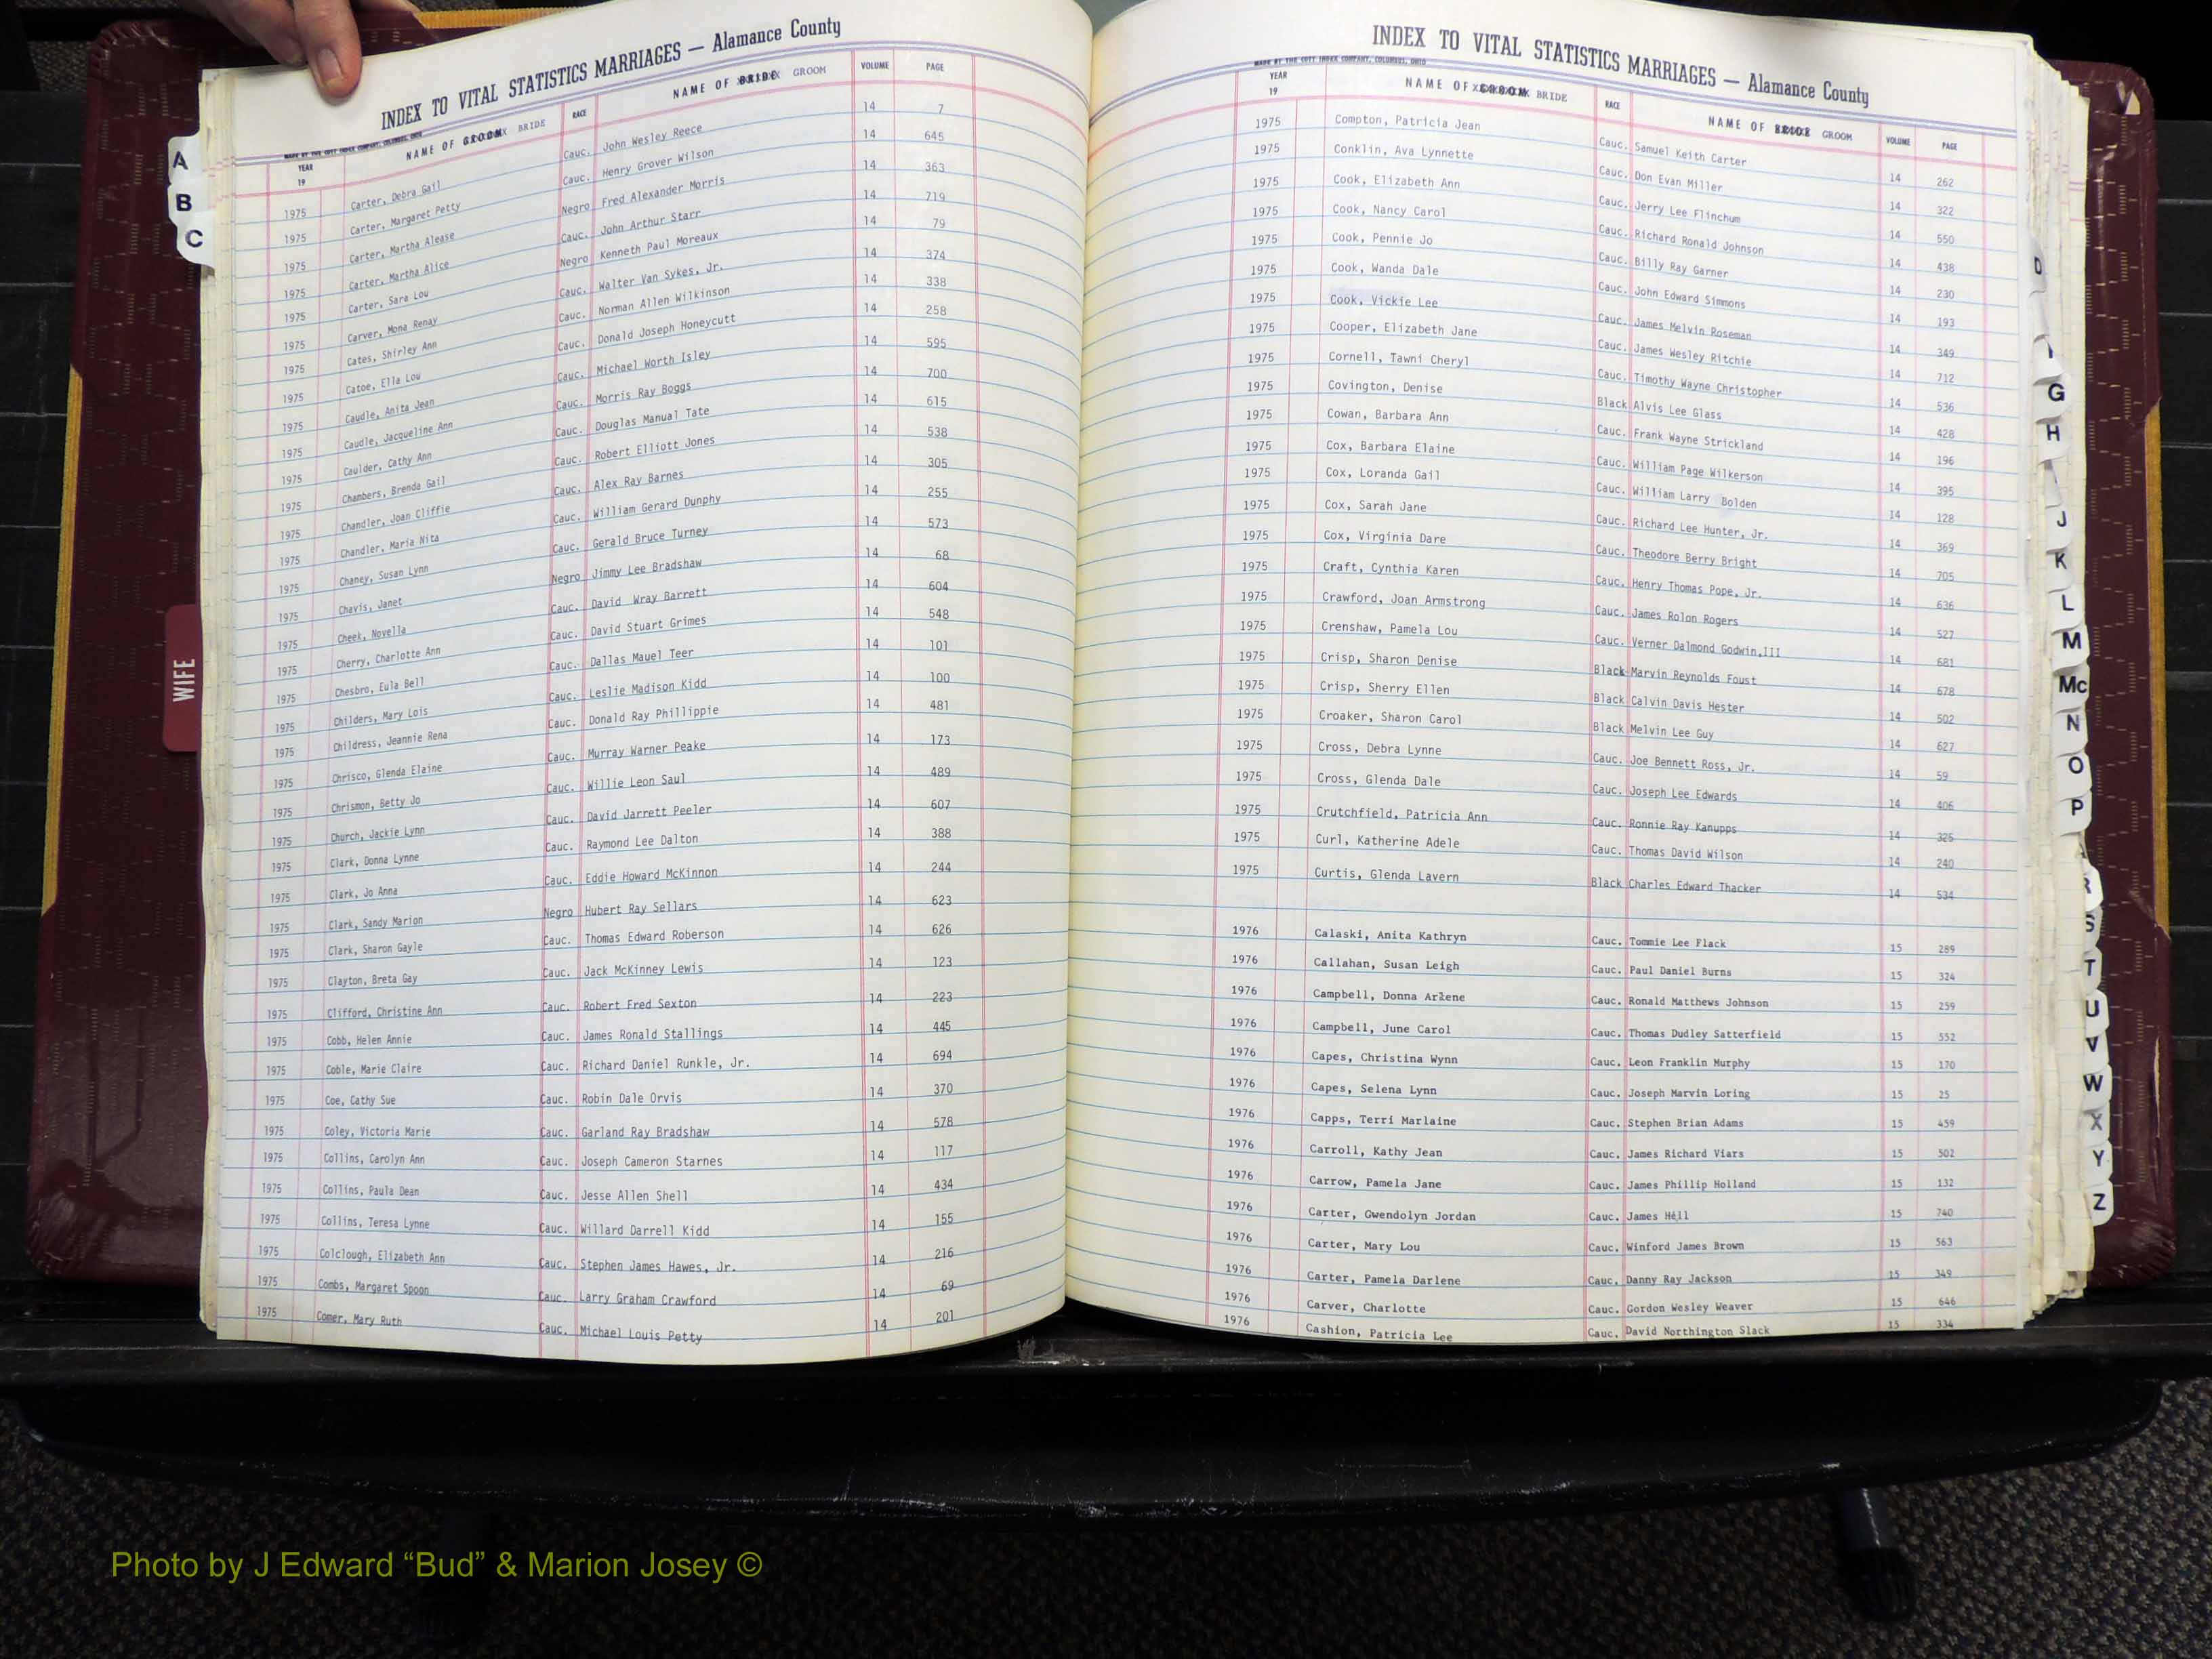 INDEX TO VITAL STATISTICS MARRIAGES — Alamance County
MADE BY THE COTT INDEX COMPANY, COLUMBUS, OHIO
YEAR 19 NAME OF GROOM BRIDE RACE NAME OF BRIDE GROOM VOLUME PAGE
1975 Carter, Debra Gail Cauc. John Wesley Reece 14 7
1975 Carter, Margaret Petty Cauc. Henry Grover Wilson 14 645
1975 Carter, Martha Alease Negro Fred Alexander Morris 14 363
1975 Carter, Martha Alice Cauc. John Arthur Starr 14 719
1975 Carter, Sara Lou Negro Kenneth Paul Moreaux 14 79
1975 Carver, Mona Renay Cauc. Walter Van Sykes, Jr. 14 374
1975 Cates, Shirley Ann Cauc. Norman Allen Wilkinson 14 338
1975 Catoe, Ella Lou Cauc. Donald Joseph Honeycutt 14 258
1975 Caudle, Anita Jean Cauc. Michael Worth Isley 14 595
1975 Caudle, Jacqueline Ann Cauc. Morris Ray Boggs 14 700
1975 Caulder, Cathy Ann Cauc. Douglas Manual Tate 14 615
1975 Chambers, Brenda Gail Cauc. Robert Elliott Jones 14 538
1975 Chandler, Joan Cliffie Cauc. Alex Ray Barnes 14 305
1975 Chandler, Maria Nita Cauc. William Gerard Dunphy 14 255
1975 Chaney, Susan Lynn Cauc. Gerald Bruce Turney 14 573
1975 Chavis, Janet Negro Jimmy Lee Bradshaw 14 68
1975 Cheek, Novella Cauc. David Wray Barrett 14 604
1975 Cherry, Charlotte Ann Cauc. David Stuart Grimes 14 548
1975 Chesbro, Eula Bell Cauc. Dallas Mauel Teer 14 101
1975 Childers, Mary Lois Cauc. Leslie Madison Kidd 14 100
1975 Childress, Jeannie Rena Cauc. Donald Ray Phillippie 14 481
1975 Chrisco, Glenda Elaine Cauc. Murray Warner Peake 14 173
1975 Chrismon, Betty Jo Cauc. Willie Leon Saul 14 489
1975 Church, Jackie Lynn Cauc. David Jarrett Peeler 14 607
1975 Clark, Donna Lynne Cauc. Raymond Lee Dalton 14 388
1975 Clark, Jo Anna Cauc. Eddie Howard McKinnon 14 244
1975 Clark, Sandy Marion Negro Hubert Ray Sellars 14 623
1975 Clark, Sharon Gayle Cauc. Thomas Edward Roberson 14 626
1975 Clayton, Breta Gay Cauc. Jack McKinney Lewis 14 123
1975 Clifford, Christine Ann Cauc. Robert Fred Sexton 14 223
1975 Cobb, Helen Annie Cauc. James Ronald Stallings 14 445
1975 Coble, Marie Claire Cauc. Richard Daniel Runkle, Jr. 14 694
1975 Coe, Cathy Sue Cauc. Robin Dale Orvis 14 370
1975 Coley, Victoria Marie Cauc. Garland Ray Bradshaw 14 578
1975 Collins, Carolyn Ann Cauc. Joseph Cameron Starnes 14 117
1975 Collins, Paula Dean Cauc. Jesse Allen Shell 14 434
1975 Collins, Teresa Lynne Cauc. Willard Darrell Kidd 14 155
1975 Colclough, Elizabeth Ann Cauc. Stephen James Hawes, Jr. 14 216
1975 Combs, Margaret Spoon Cauc. Larry Graham Crawford 14 69
1975 Comer, Mary Ruth Cauc. Michael Louis Petty 14 201
A
B
C
WIFE
INDEX TO VITAL STATISTICS MARRIAGES — Alamance County
MADE BY THE COTT INDEX COMPANY, COLUMBUS, OHIO
YEAR 19 NAME OF GROOM BRIDE RACE NAME OF BRIDE GROOM VOLUME PAGE
1975 Compton, Patricia Jean Cauc. Samuel Keith Carter 14 262
1975 Conklin, Ava Lynnette Cauc. Don Evan Miller 14 322
1975 Cook, Elizabeth Ann Cauc. Jerry Lee Flinchum 14 550
1975 Cook, Nancy Carol Cauc. Richard Ronald Johnson 14 438
1975 Cook, Pennie Jo Cauc. Billy Ray Garner 14 230
1975 Cook, Wanda Dale Cauc. John Edward Simmons 14 193
1975 Cook, Vickie Lee Cauc. James Melvin Roseman 14 349
1975 Cooper, Elizabeth Jane Cauc. James Wesley Ritchie 14 712
1975 Cornell, Tawni Cheryl Cauc. Timothy Wayne Christopher 14 536
1975 Covington, Denise Black Alvis Lee Glass 14 428
1975 Cowan, Barbara Ann Cauc. Frank Wayne Strickland 14 196
1975 Cox, Barbara Elaine Cauc. William Page Wilkerson 14 395
1975 Cox, Loranda Gail Cauc. William Larry Bolden 14 128
1975 Cox, Sarah Jane Cauc. Richard Lee Hunter, Jr. 14 369
1975 Cox, Virginia Dare Cauc. Theodore Berry Bright 14 705
1975 Craft, Cynthia Karen Cauc. Henry Thomas Pope, Jr. 14 636
1975 Crawford, Joan Armstrong Cauc. James Rolon Rogers 14 527
1975 Crenshaw, Pamela Lou Cauc. Verner Dalmond Godwin,III 14 681
1975 Crisp, Sharon Denise Black Marvin Reynolds Foust 14 678
1975 Crisp, Sherry Ellen Black Calvin Davis Hester 14 502
1975 Croaker, Sharon Carol Black Melvin Lee Guy 14 627
1975 Cross, Debra Lynne Cauc. Joe Bennett Ross, Jr. 14 59
1975 Cross, Glenda Dale Cauc. Joseph Lee Edwards 14 406
1975 Crutchfield, Patricia Ann Cauc. Ronnie Ray Kanupps 14 325
1975 Curl, Katherine Adele Cauc. Thomas David Wilson 14 240
1975 Curtis, Glenda Lavern Black Charles Edward Thacker 14 534
1976 Calaski, Anita Kathryn Cauc. Tommie Lee Flack 15 289
1976 Callahan, Susan Leigh Cauc. Paul Daniel Burns 15 324
1976 Campbell, Donna Arlene Cauc. Ronald Matthews Johnson 15 259
1976 Campbell, June Carol Cauc. Thomas Dudley Satterfield 15 552
1976 Capes, Christina Wynn Cauc. Leon Franklin Murphy 15 170
1976 Capes, Selena Lynn Cauc. Joseph Marvin Loring 15 25
1976 Capps, Terri Marlaine Cauc. Stephen Brian Adams 15 459
1976 Carroll, Kathy Jean Cauc. James Richard Viars 15 502
1976 Carrow, Pamela Jane Cauc. James Phillip Holland 15 132
1976 Carter, Gwendolyn Jordan Cauc. James Hill 15 740
1976 Carter, Mary Lou Cauc. Winford James Brown 15 563
1976 Carter, Pamela Darlene Cauc. Danny Ray Jackson 15 349
1976 Carver, Charlotte Cauc. Gordon Wesley Weaver 15 646
1976 Cashion, Patricia Lee Cauc. David Northington Slack 15 334
D
G
H
J
K
L
M
Mc
N
O
P
R
S
T
U
V
W
X
Y
Z
Photo by J Edward “Bud” & Marion Josey ©